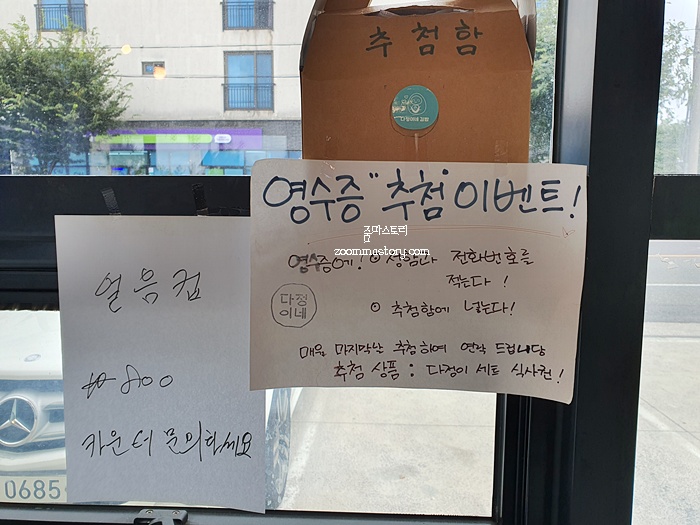 추첨함
다정이네 김밥
영수증 "추첨" 이벤트!
줌마스토리
zoomingstory.com
영수증에! ① 성함과 전화번호를
적는다!
② 추첨함에 넣는다!
다정
이네
매월 마지막날 추첨하여 연락 드립니당
추첨 상품 : 다정이 세트 식사권!
얼음컵
₩800
카운터 문의하세요
0685